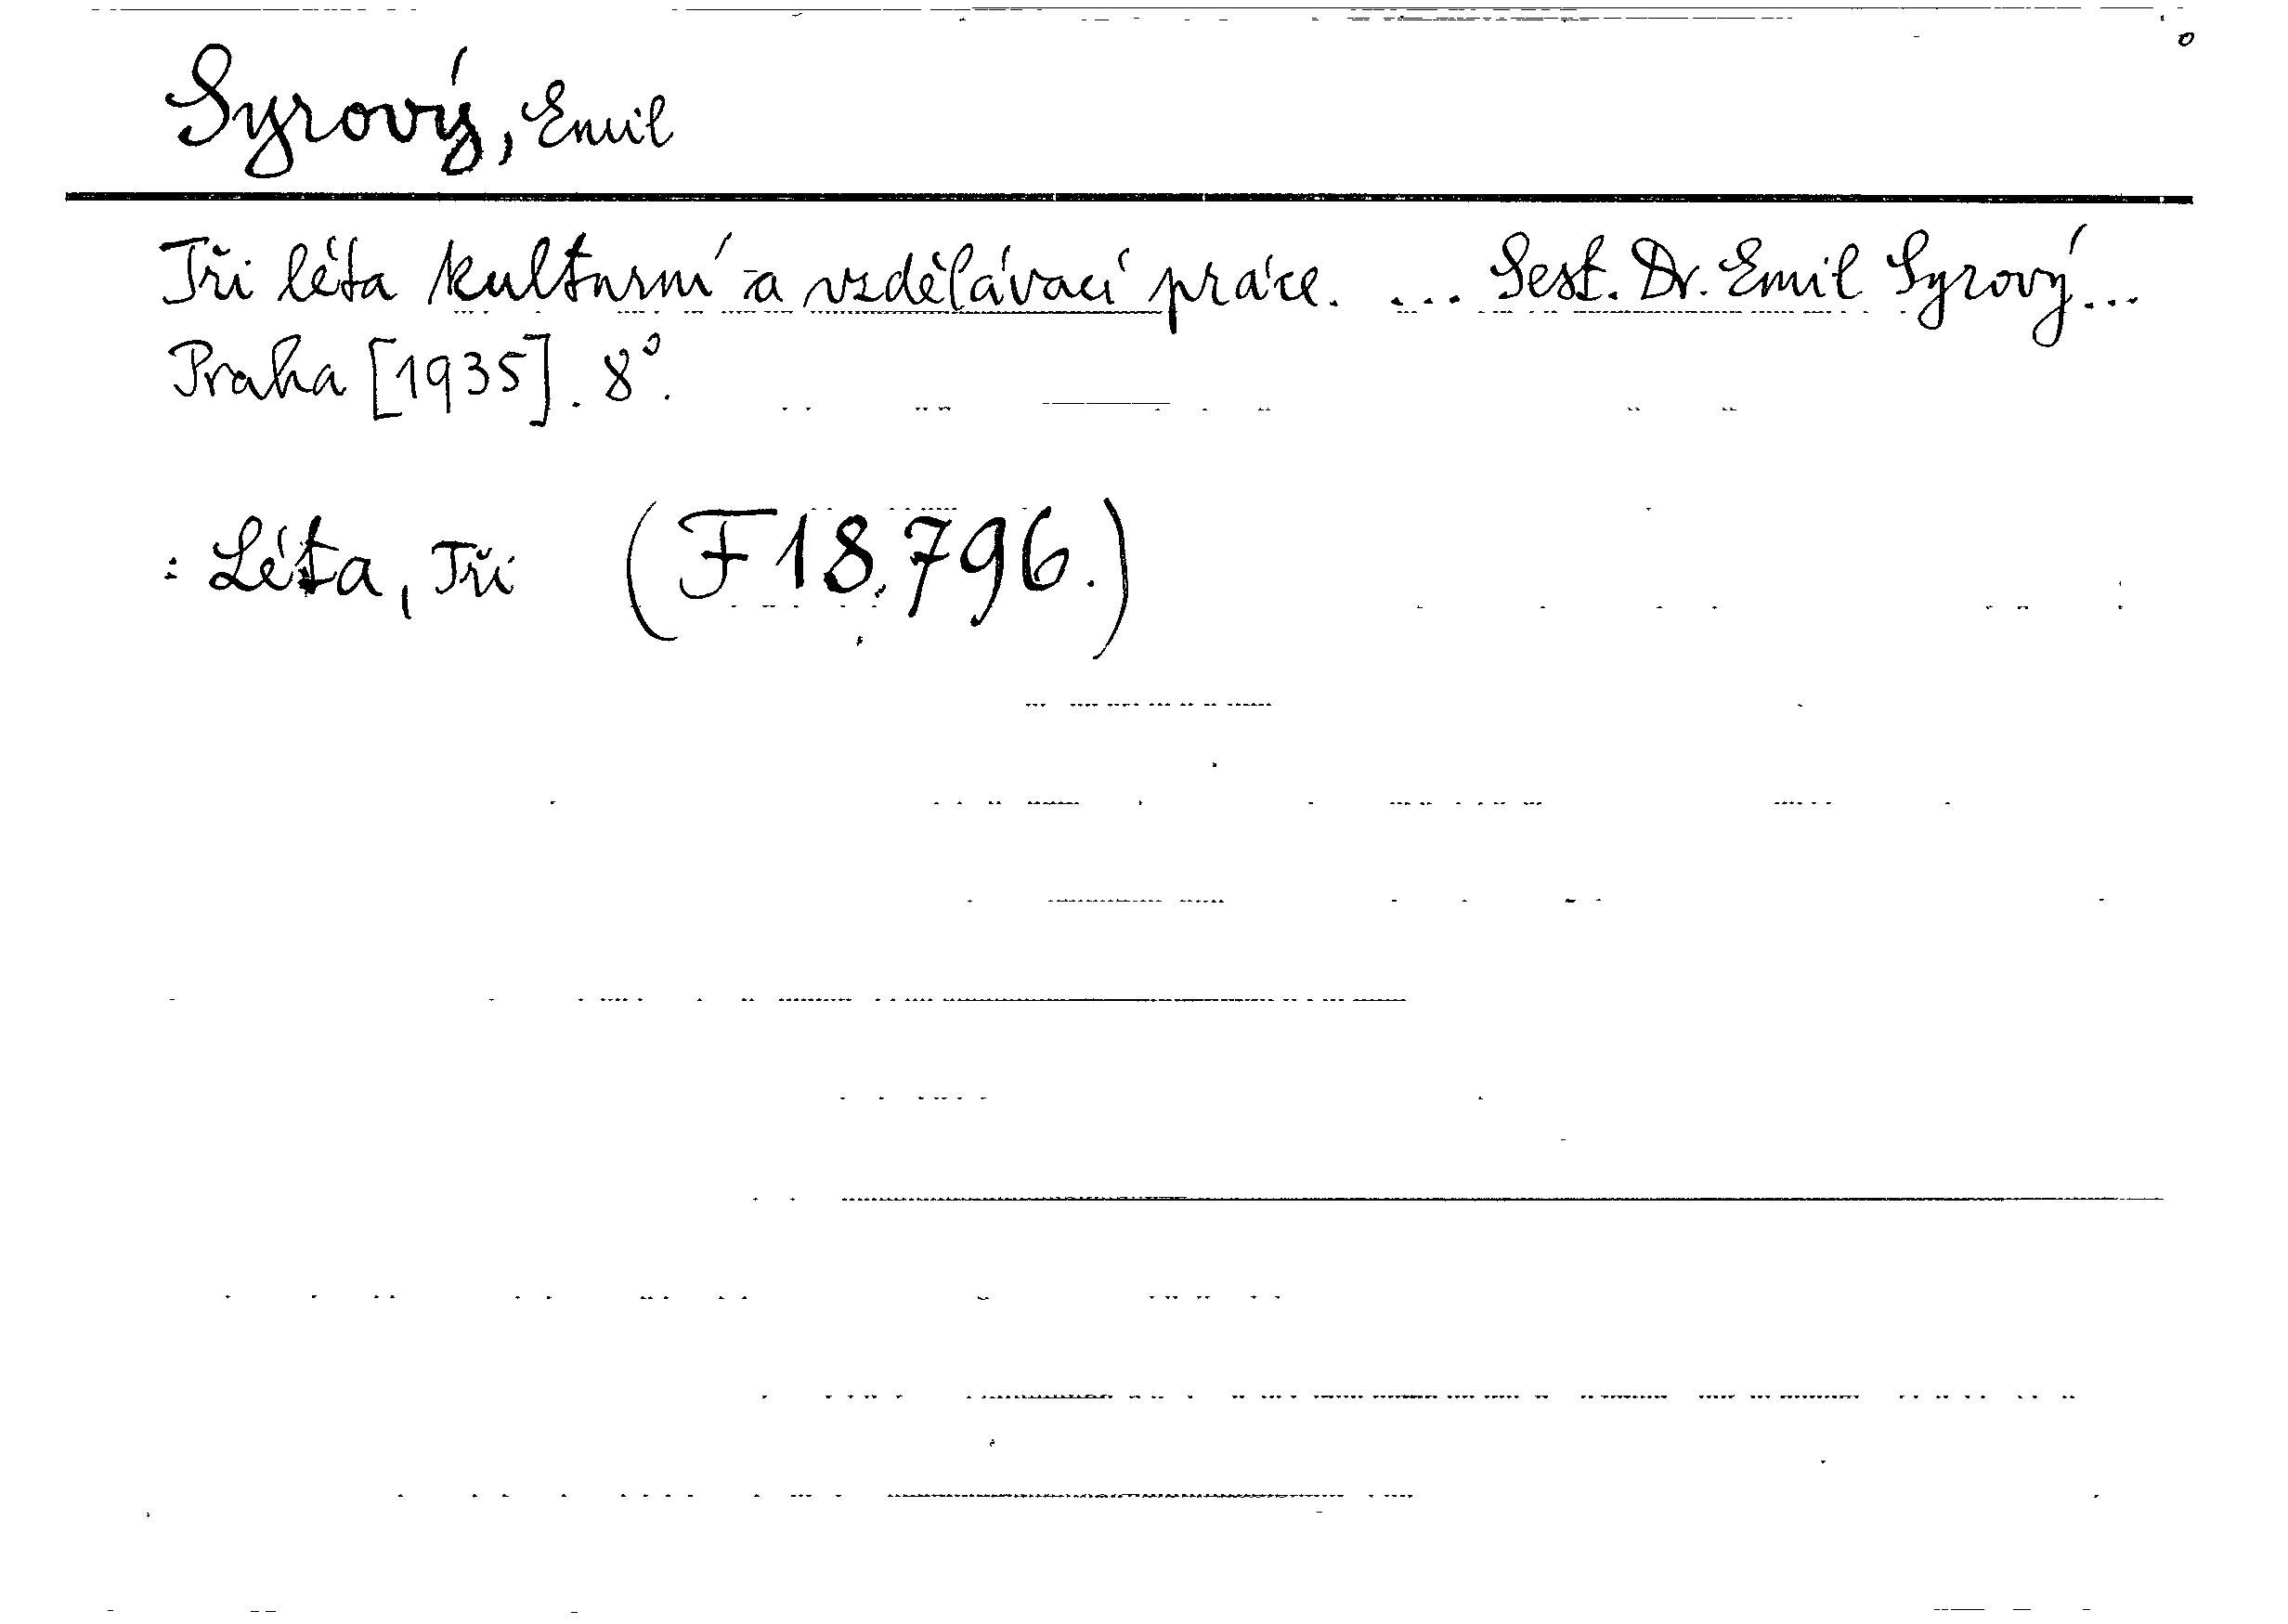 Syrový, Emil
Tři léta kulturní a vzdělávací práce. ... Sest. Dr. Emil Syrový...
Praha [1935]. 8°.
: Léta, Tři (F 18.796.)